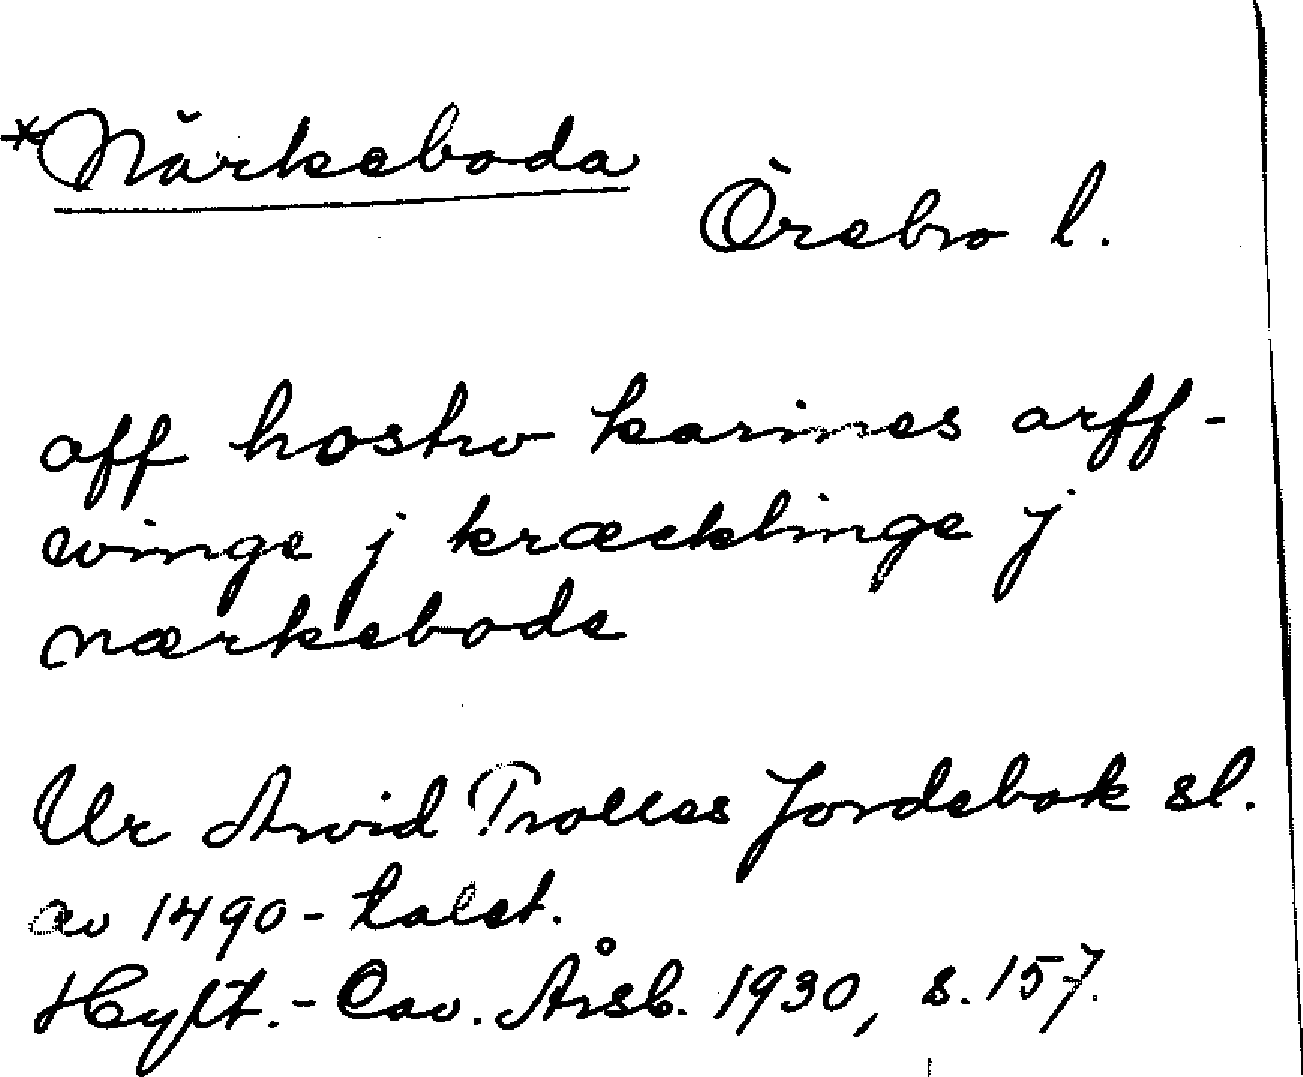 *Närkeboda
Örebro l.
aff hostro karines arff-
winge j kræcklinge j
nærkebode
Ur Arvid Trolles Jordebok sl.
av 1490-talet.
Hylt.-Cav. Årsb. 1930, s. 157.